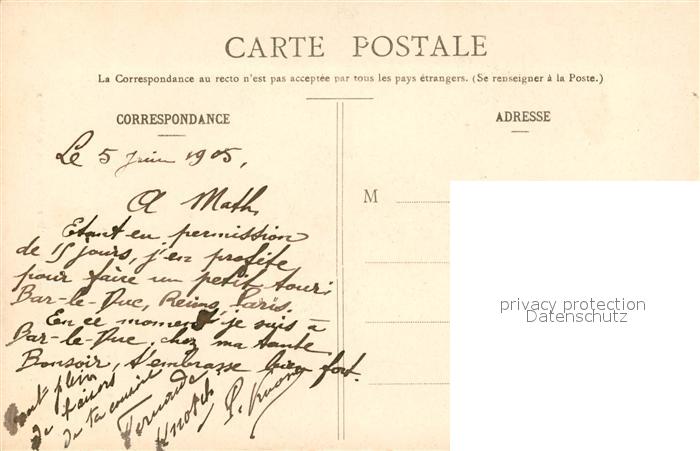 CARTE POSTALE
La Correspondance au recto n'est pas acceptée par tous les pays étrangers. (Se renseigner à la Poste.)
CORRESPONDANCE
Le 5 Juin 1905,
A Math.
Etant en permission
de 15 jours, j'en profite
pour faire un petit tour:
Bar-le-Duc, Reims, Paris.
En ce moment je suis à
Bar-le-Duc, chez ma tante
Bonsoir, t'embrasse bien fort.
plein
de baisers
de ta cousine
Fernande
ADRESSE
M
privacy protection
Datenschutz